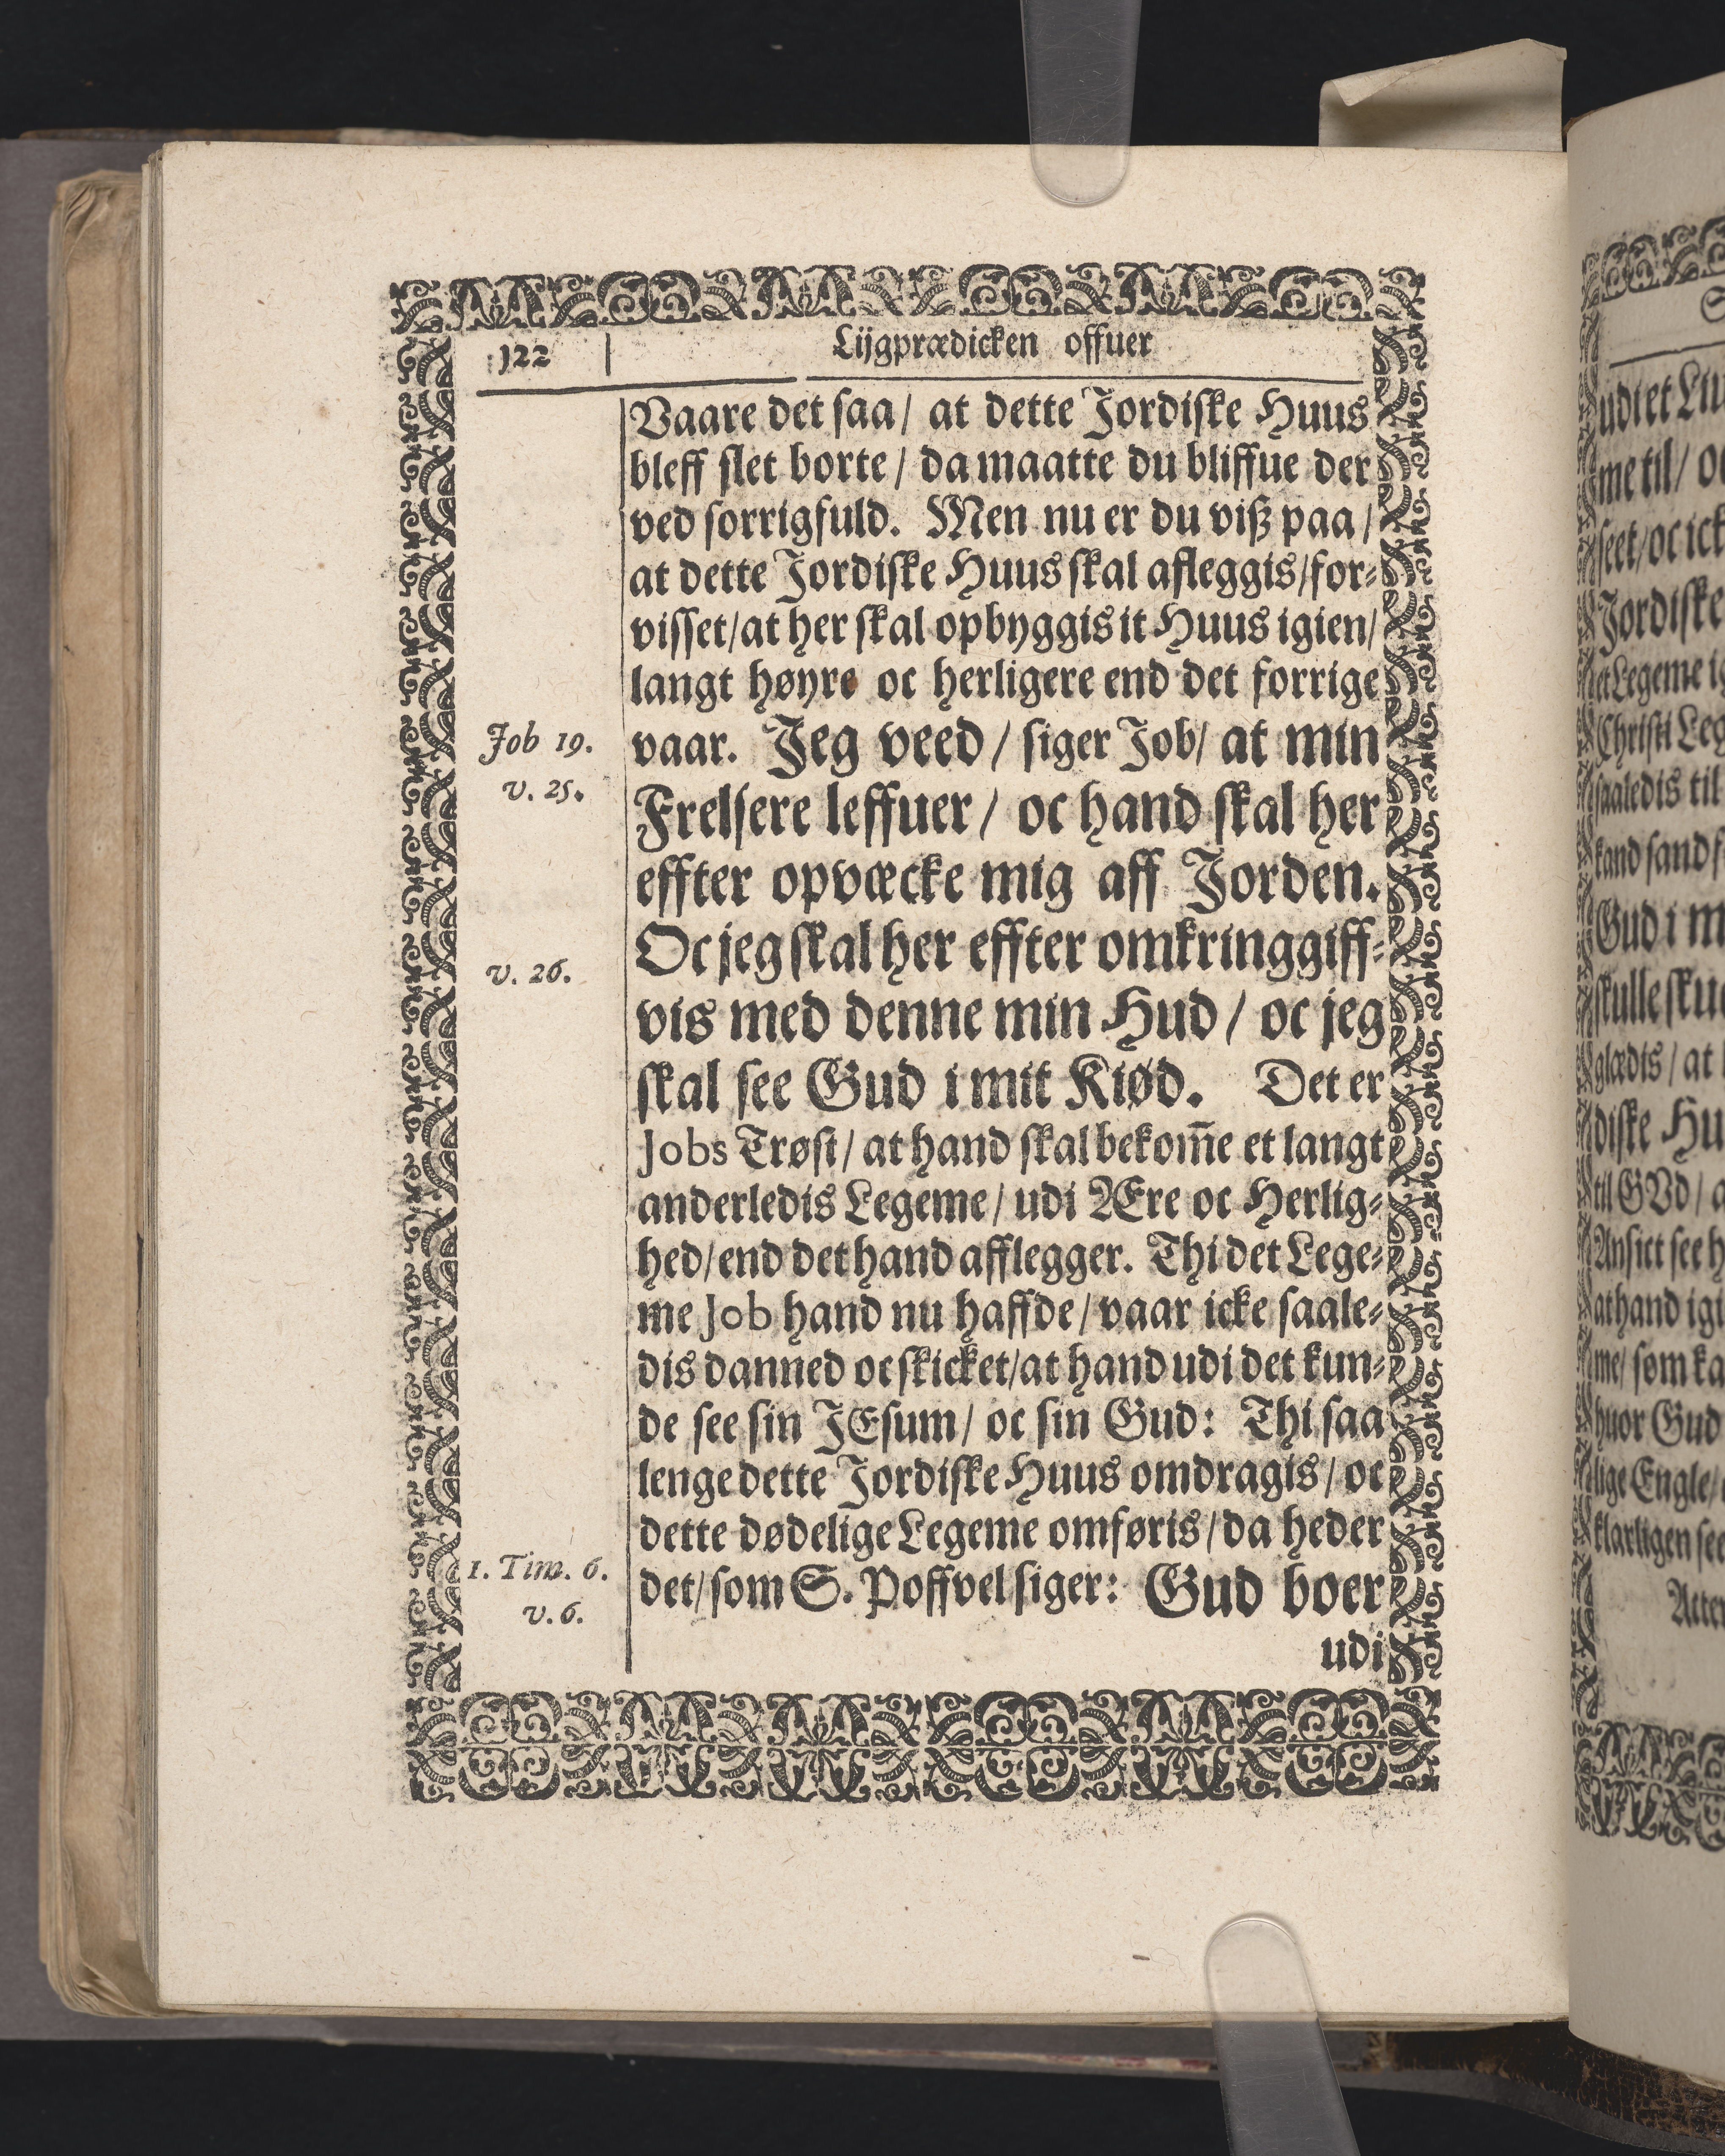 122
Lijgprædicken offuer
Vaare det saa/ at dette Jordiske Huus
bleff slet borte/ da maatte du bliffue der
ved sorrigfuld. Men nu er du viß paa/
at dette Jordiske Huus skal afleggis/for-
visset/at her skal opbyggis it Huus igien/
langt høyre oc herligere end det forrige
Job 19.
vaar. Jeg veed/ siger Job/ at min
v. 25.
Frelsere leffuer/ oc hand skal her
effter opvæcke mig aff Jorden.
Oc jeg skal her effter omkringgiff-
v. 26.
vis med denne min Hud/ oc jeg
skal see Gud i mit Kiød. Det er
Jobs Trøst/ at hand skal bekom̄e et langt
anderledis Legeme/ udi Ære oc Herlig-
hed/end det hand afflegger. Thi det Lege-
me Job hand nu haffde/ vaar icke saale-
dis danned oc skicket/at hand udi det kun-
de see sin JEsum/ oc sin Gud: Thi saa
lenge dette Jordiske Huus omdragis/ oc
dette dødelige Legeme omføris/da heder
1. Tim. 6.
det/som S. Poffvel siger: Gud boer
v. 6.
udi
udi et
me til/
seet/oc
Jordiske
Gud i
diske
til GVd/
Ansict see
at hand
me/ som
huor Gud
lige Engle/
klarligen see